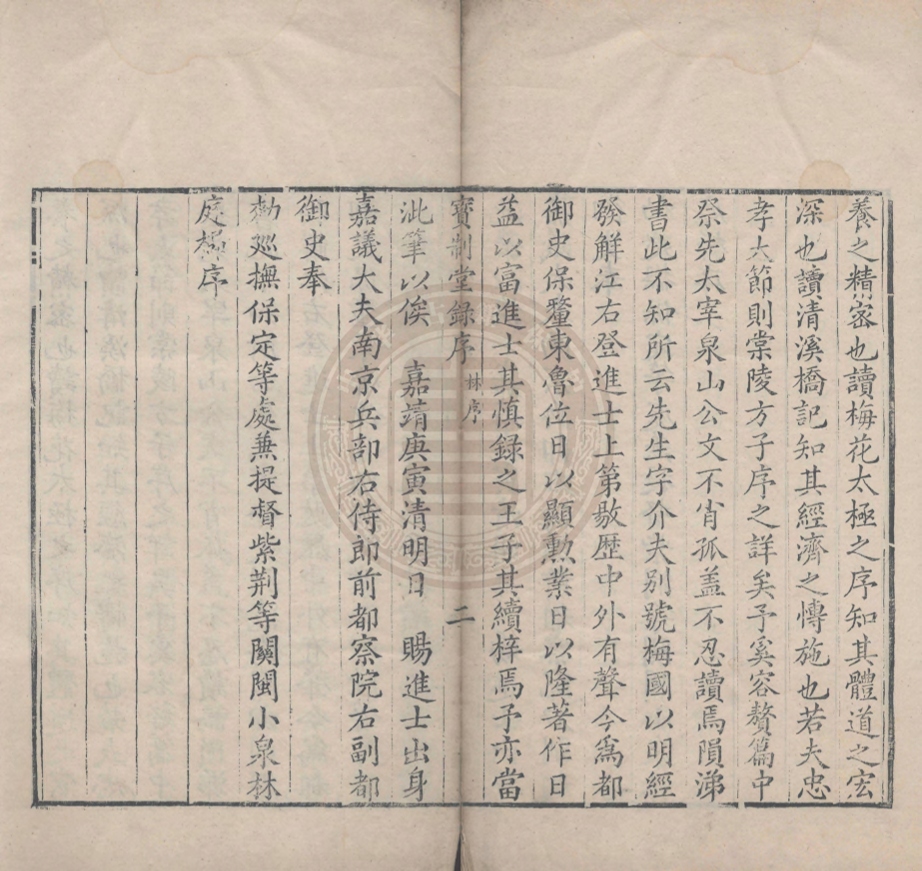 養之精密也讀梅花太極之序知其體道之宏
深也讀清溪橋記知其經濟之愽施也若夫忠
孝大節則棠陵方子序之詳矣予奚容贅篇中
祭先太宰泉山公文不肖孤盖不忍讀焉隕涕
書此不知所云先生字介夫别號梅國以明經
發解江右登進士上第敭歴中外有聲今為都
御史保釐東魯位日以顯勲業日以隆著作日
益以富進士其慎録之王子其續梓焉予亦當
寳制堂録序 林序 二
泚筆以俟 嘉靖庚寅清明日 賜進士出身
嘉議大夫南京兵部右侍郎前都察院右副都
御史奉
勑巡撫保定等處兼提督紫荆等關閩小泉林
庭㭿序